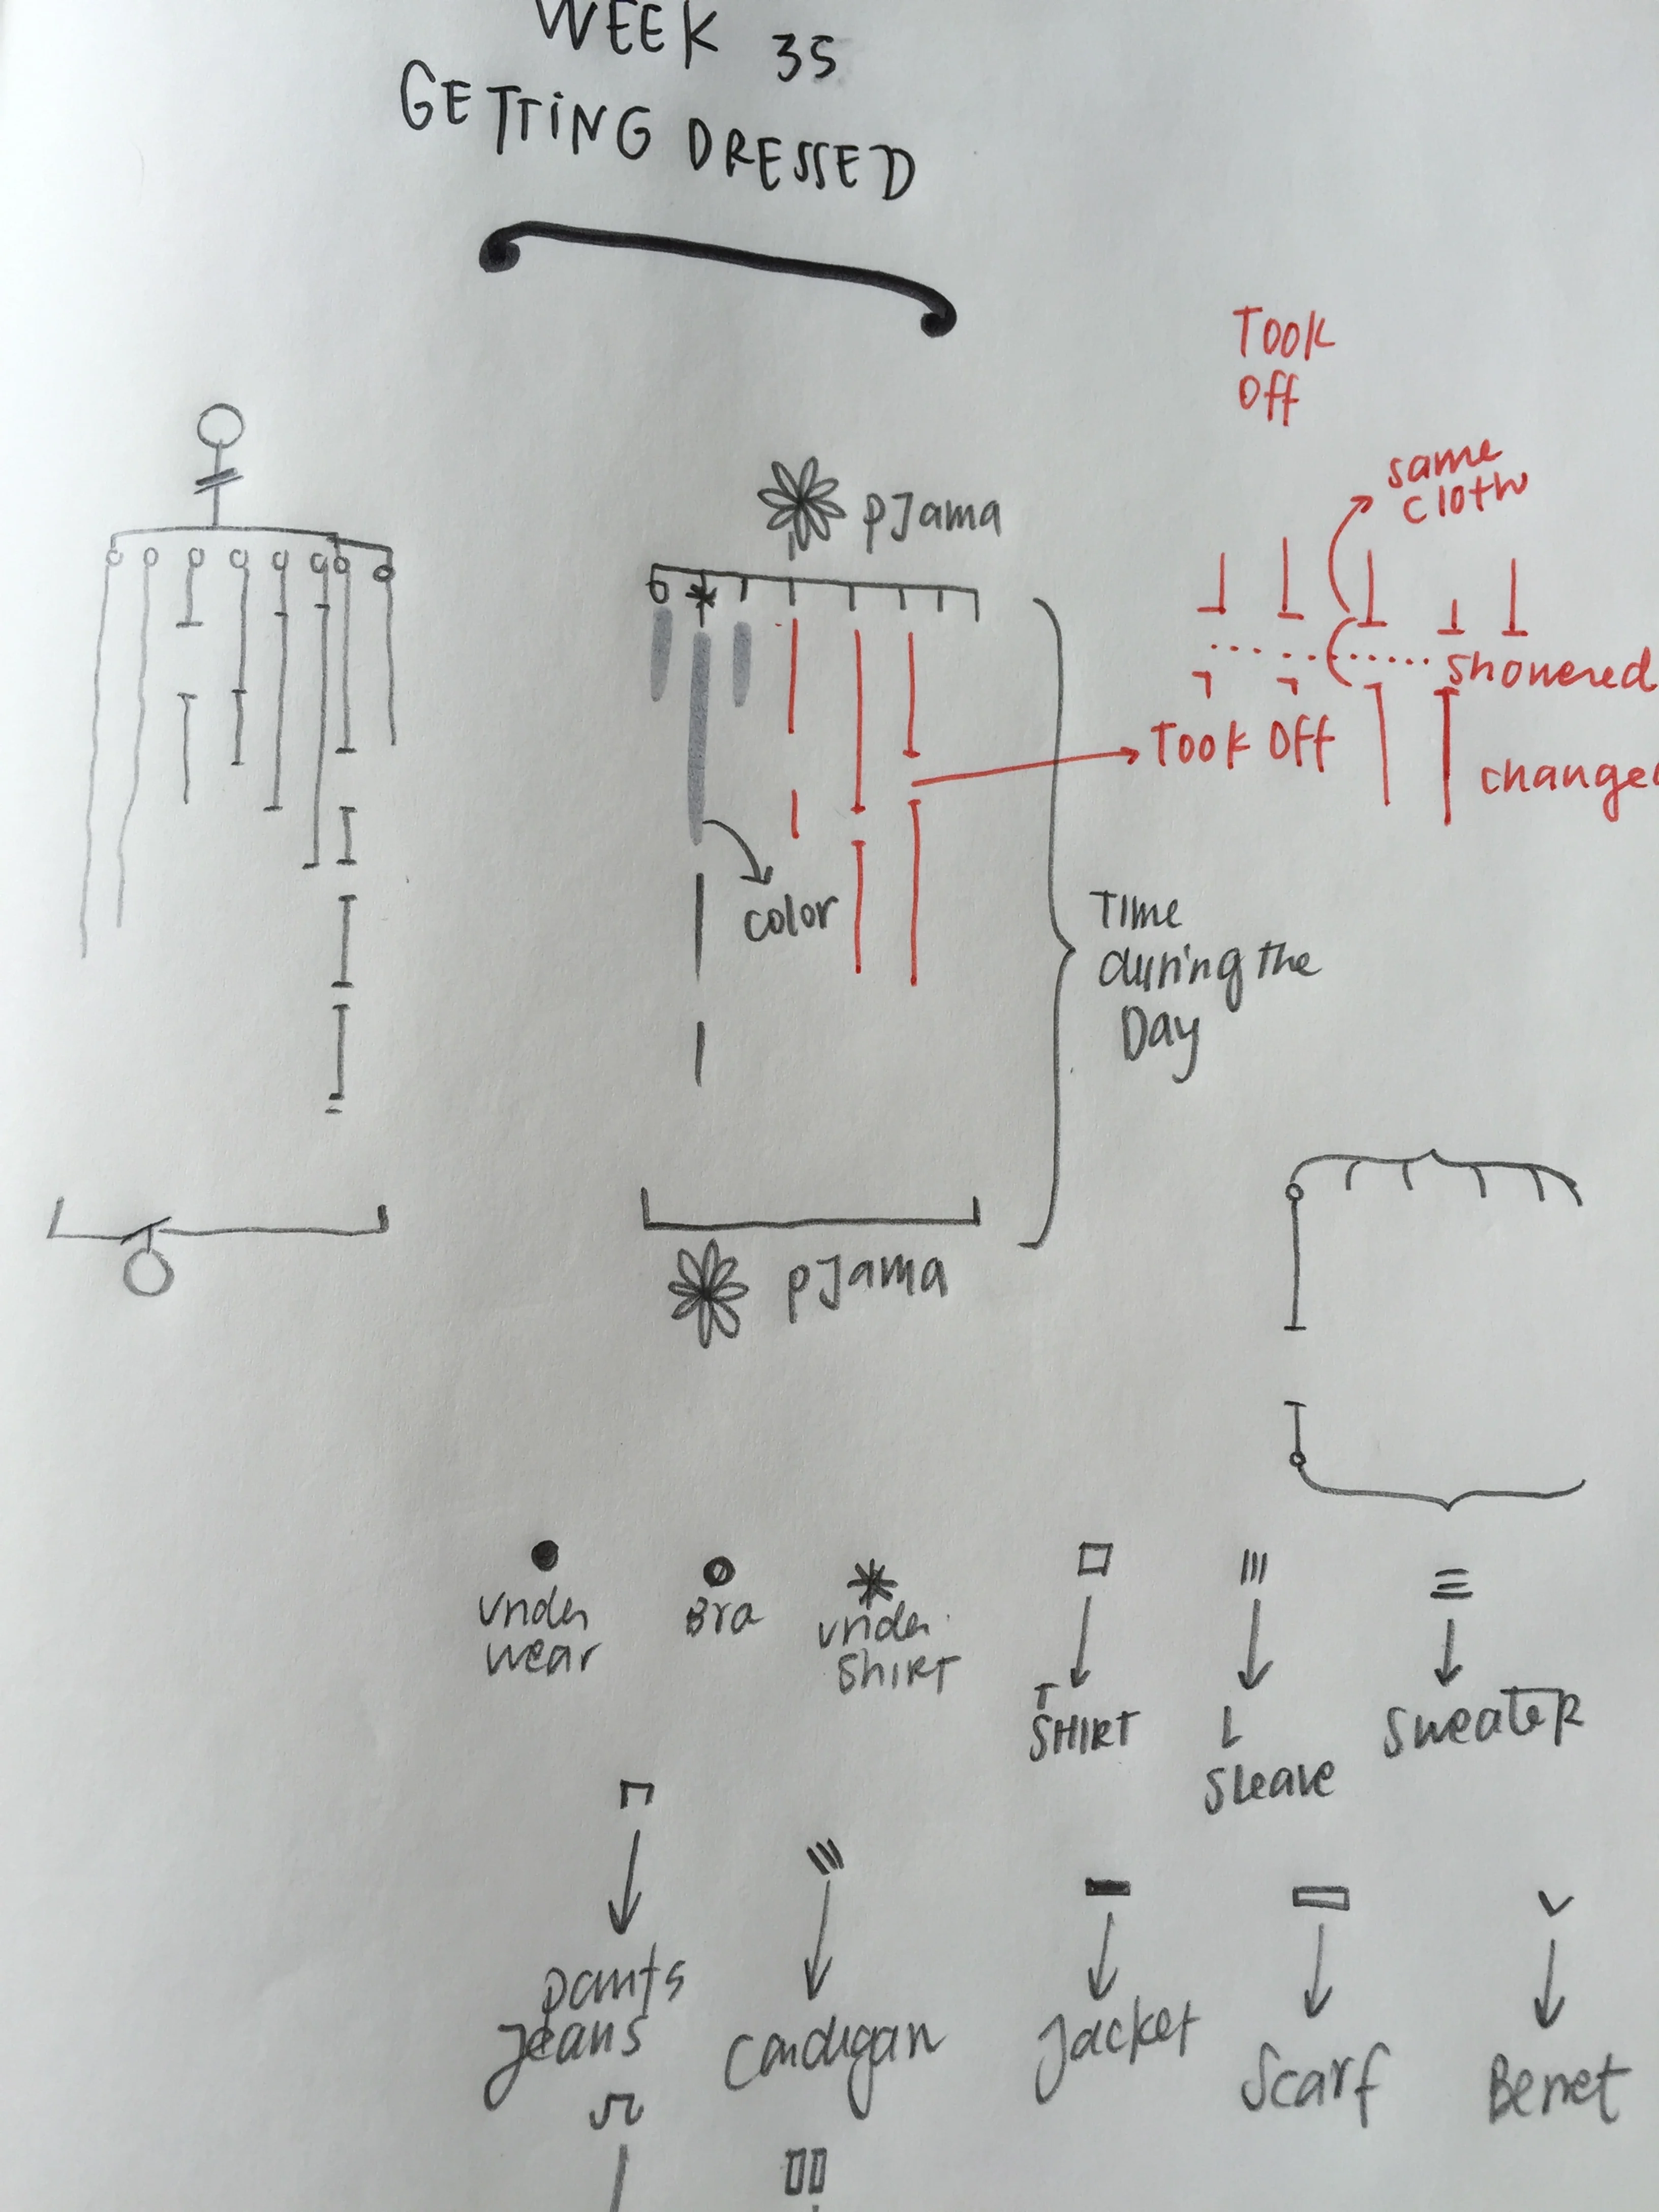 WEEK 35
GETTING DRESSED
TOOK
Off
same
cloth
pJama
showered
Took Off
change
color
Time
during the
Day
pJama
under
wear
Bra
under
ShiRT
T
SHIRT
L
Sleave
SweateR
pants
Jeans
Cardigan
Jacket
Scarf
Berret